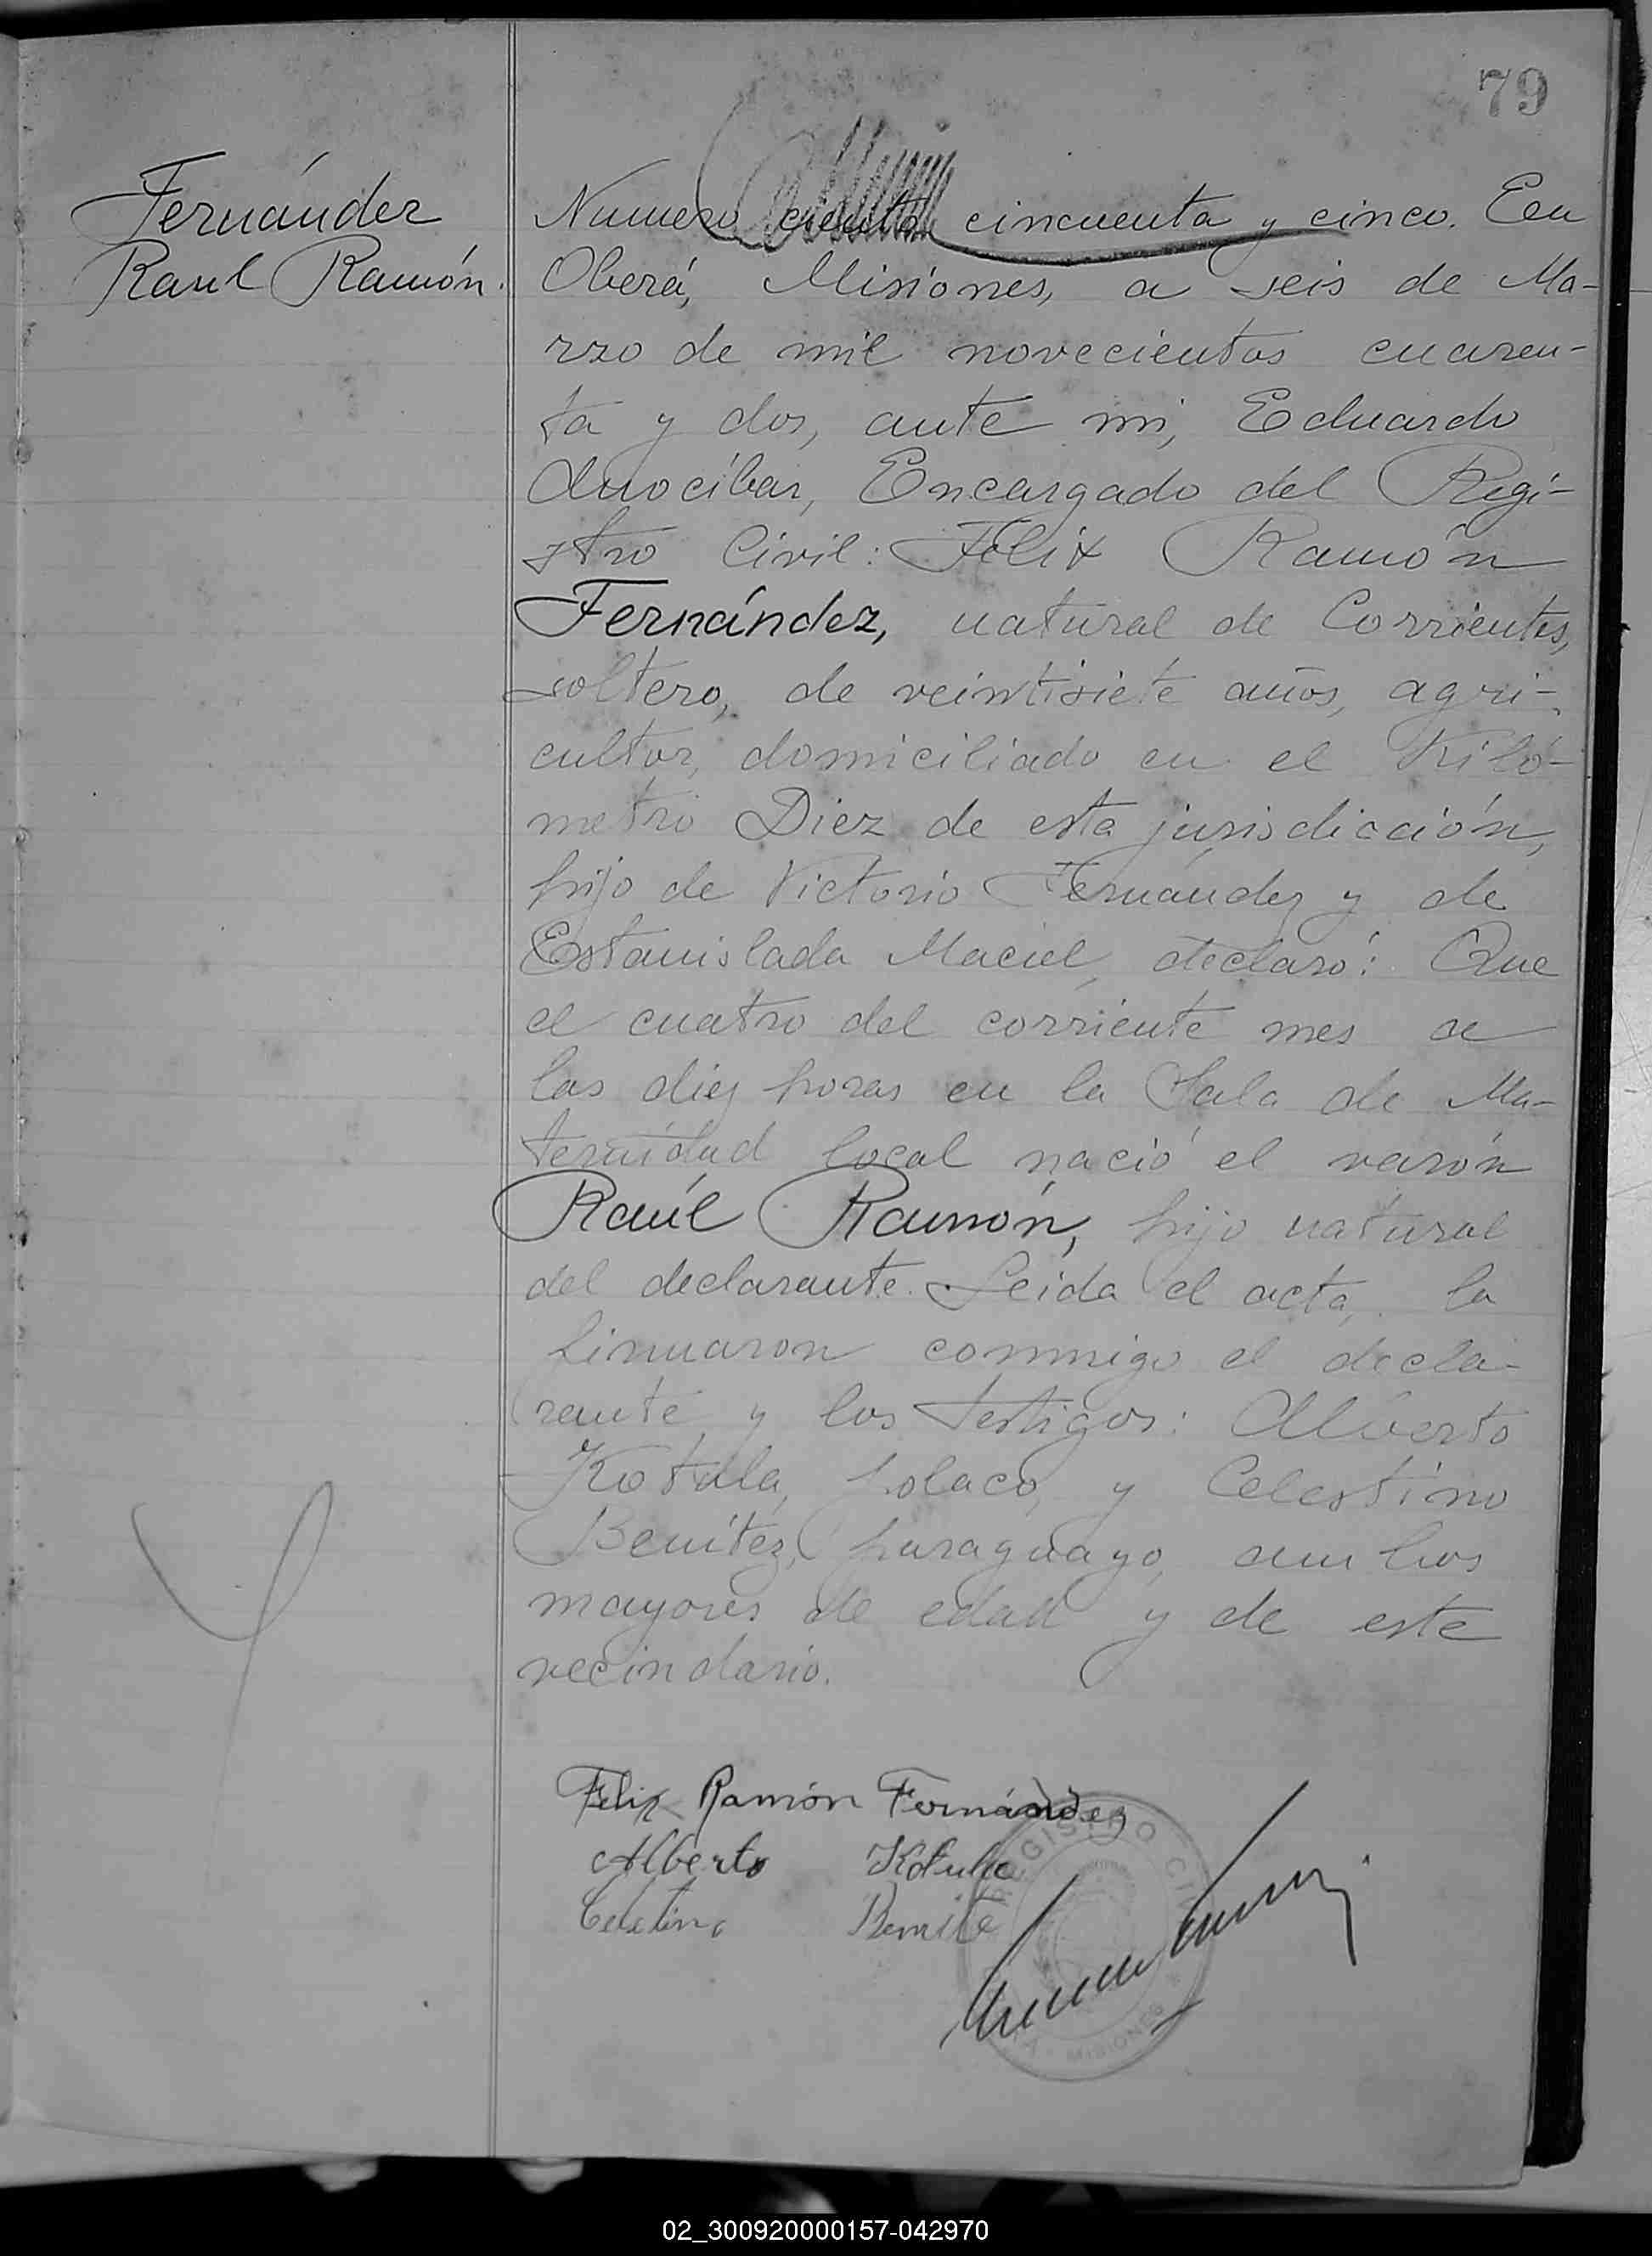 79
Fernández
Raul Ramón.
Numero ciento cincuenta y cinco. En
Oberá, Misiones, a seis de Ma-
rzo de mil novecientos cuaren-
ta y dos, ante mi, Eduardo
Encargado del Regi-
stro Civil: Felix Ramón
Fernández, natural de Corrientes,
soltero, de veintisiete años, agri-
cultor, domiciliado en el Kiló-
metro Diez de esta jurisdicción,
hijo de Victorio Fernández y de
Estanislada Maciel, declaró: Que
el cuatro del corriente mes a
las diez horas en la Sala de Ma-
ternidad local nació el varón
Raúl Ramón, hijo natural
del declarante. Leida el acta, la
firmaron conmigo el decla-
rante y los testigos: Alberto
Kotula, polaco, y Celestino
Benítez, paraguayo, ambos
mayores de edad y de este
vecindario.
Felix Ramón Fernández
Alberto Kotula
Celestino Benite
REGISTRO CIVIL
MISIONES
02_300920000157-042970